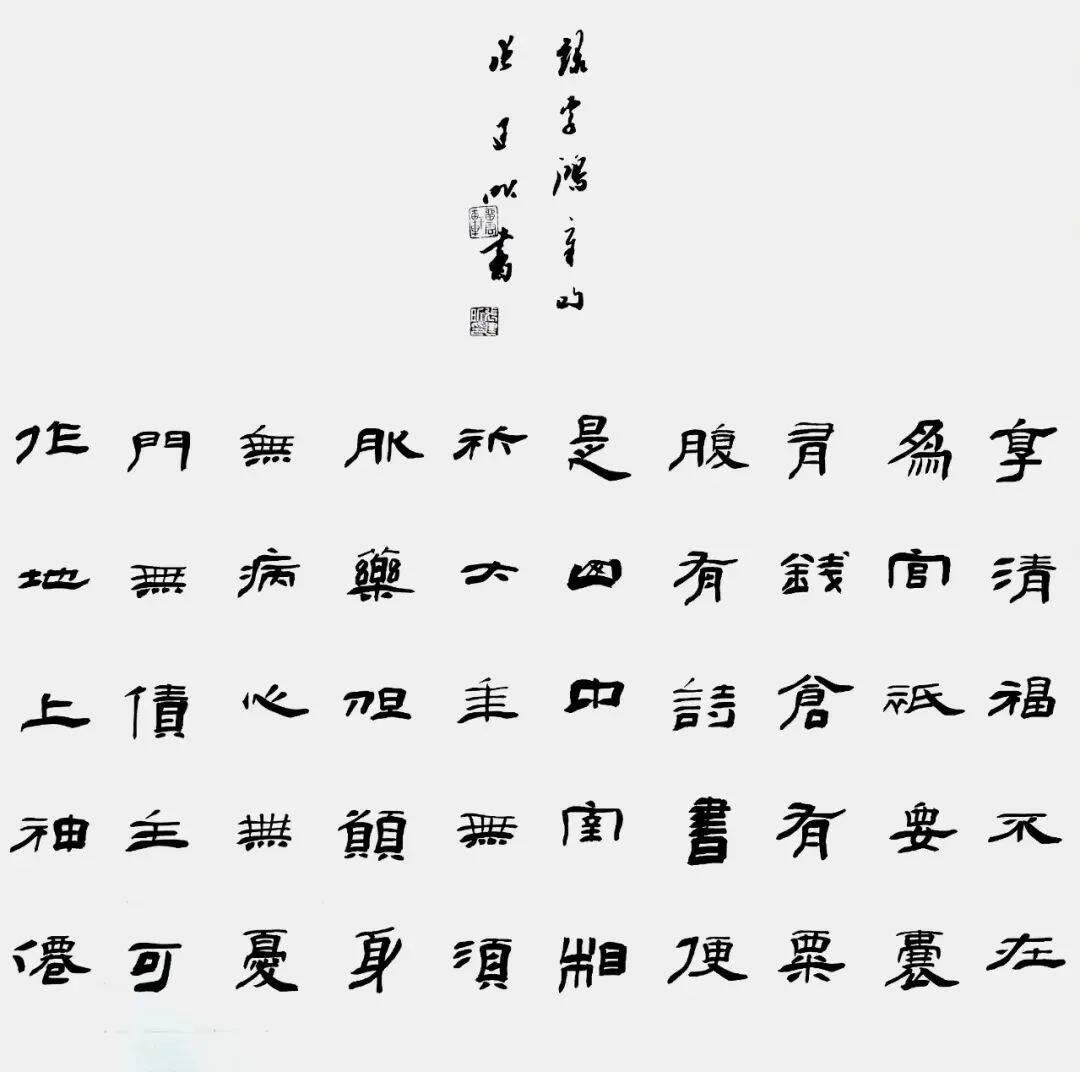 享清福不在
為官祇要囊
有錢倉有粟
腹有詩書便
是山中宰相
祈大年無須
服藥但願身
無病心無憂
門無債主可
作地上神僊
錄李鴻章句
張建書